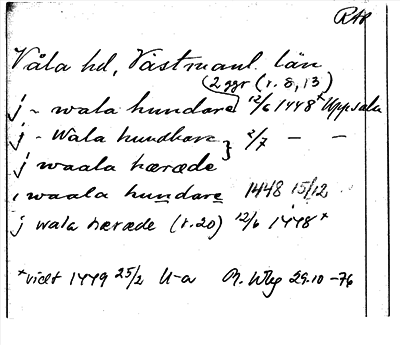 RAP
Våla hd, Västmanl. län
(2 ggr (r. 8, 13)
j - wala hundare 12/6 1448* Uppsala
j - Wala hundhare } 2/7 - -
j waala hæræde
i waala hundare 1448 15/12
j wala hæræde (r. 20) 12/6 1448*
*vidt 1449 25/2 U-a R. Wbg 29.10 -76